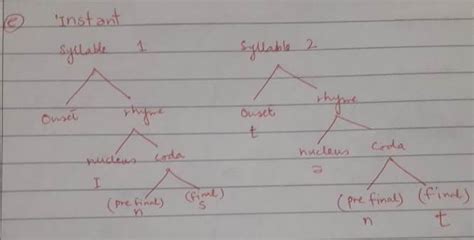 e 'Instant
Syllable 1 Syllable 2
Onset rhyme Onset rhyme
t
nucleus coda nucleus coda
I ə
(pre final) (final) (pre final) (final)
n s n t